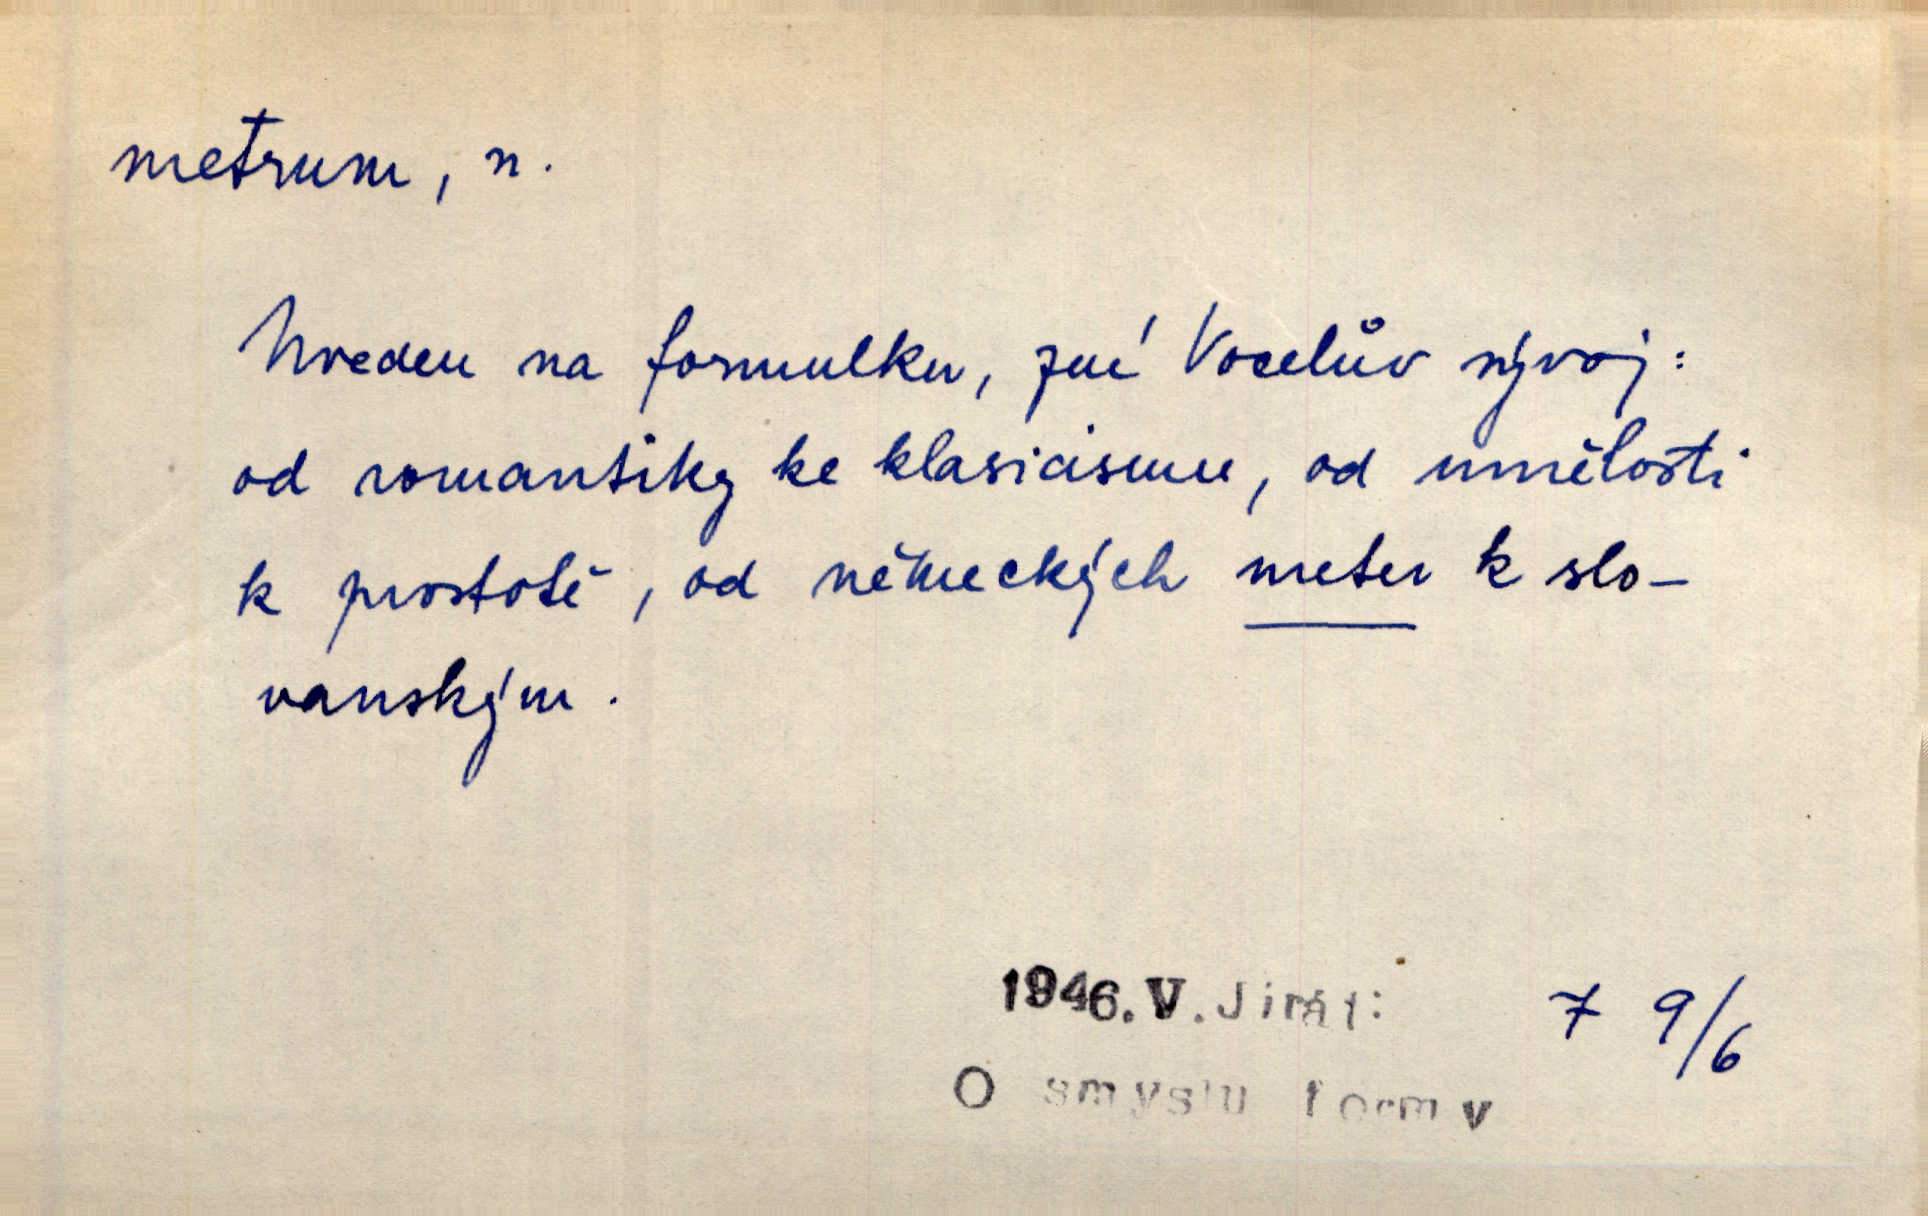 metrum, n.
Uveden na formulku, zní Vocelův vývoj:
od romantiky ke klasicismu, od umělosti
k prostotě, od německých meter k slo-
vanským.
1946.V.Jirát: 7 9/6
O smyslu formy